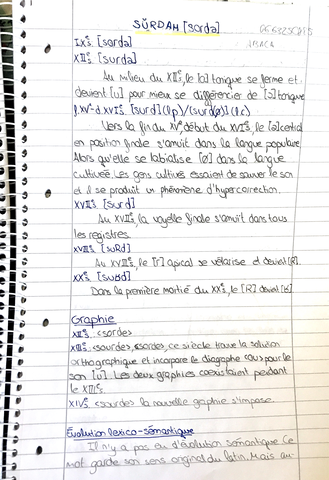 SŬRDAM [sorda]
IXᵉs. [sorda]
XIIᵉs. [surda]
Au milieu du XIIᵉs, le [o] tonique se ferme et
devient [u] pour mieux se différencier de [ɔ] tonique
f.XVᵉ-d.XVIᵉs. [surd] (l.p) / [surdø] (l.c)
Vers la fin du XVᵉ début du XVIᵉs, le [ə] central
en position finale s'amuït dans la langue populaire
Alors qu'elle se labialise [ø] dans la langue
cultivée. Les gens cultivés essaient de sauver le son
et il se produit un phénomène d'hypercorrection.
XVIIᵉs [surd]
Au XVIIᵉs, la voyelle finale s'amuït dans tous
les registres.
XVIIIᵉs. [suRd]
Au XVIIIᵉs, le [r] apical se vélarise et devient [R].
XXᵉs. [suʁd]
Dans la première moitié du XXᵉs, le [R] devient [ʁ]
Graphie
XIIᵉs. <sorde>
XIIIᵉs. <sourde>, <sorde>, ce siècle trouve la solution
orthographique et incorpore le digraphe <ou> pour le
son [u]. Les deux graphies coexistaient pendant
le XIIIᵉs.
XIVᵉs <sourde> la nouvelle graphie s'impose.
Évolution lexico-sémantique
Il n'y a pas eu d'évolution sémantique. Ce
mot garde son sens original du latin. Mais au-